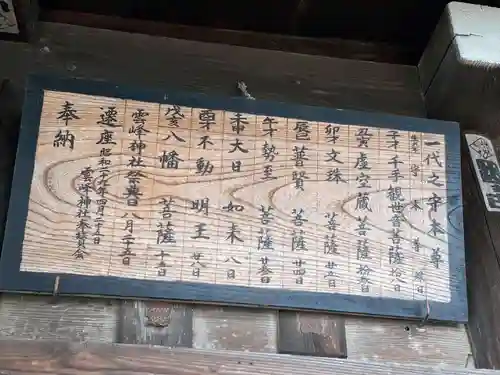 一代之守本尊
子才 千手観世音菩薩 拾七日
丑寅才 虚空蔵菩薩 拾三日
卯才 文珠 菩薩 廿五日
辰巳 普賢 菩薩 廿四日
午才 勢至 菩薩 廿三日
未申 大日 如来 八日
酉才 不動 明王 廿八日
戌亥 八幡 菩薩 十五日
雲峰神社祭日 八月二十五日
遷座 昭和二十八年四月二十五日
雲峰神社奉賛会
奉納